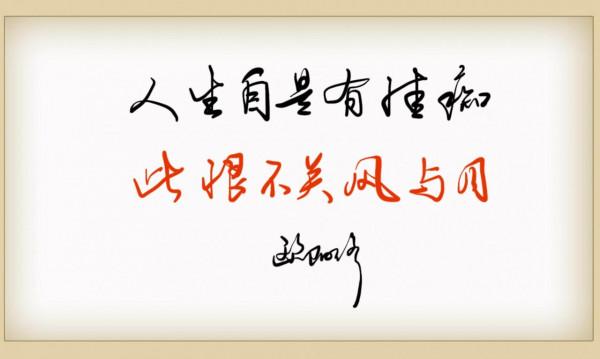 人生自是有情痴
此恨不关风与月
欧阳修